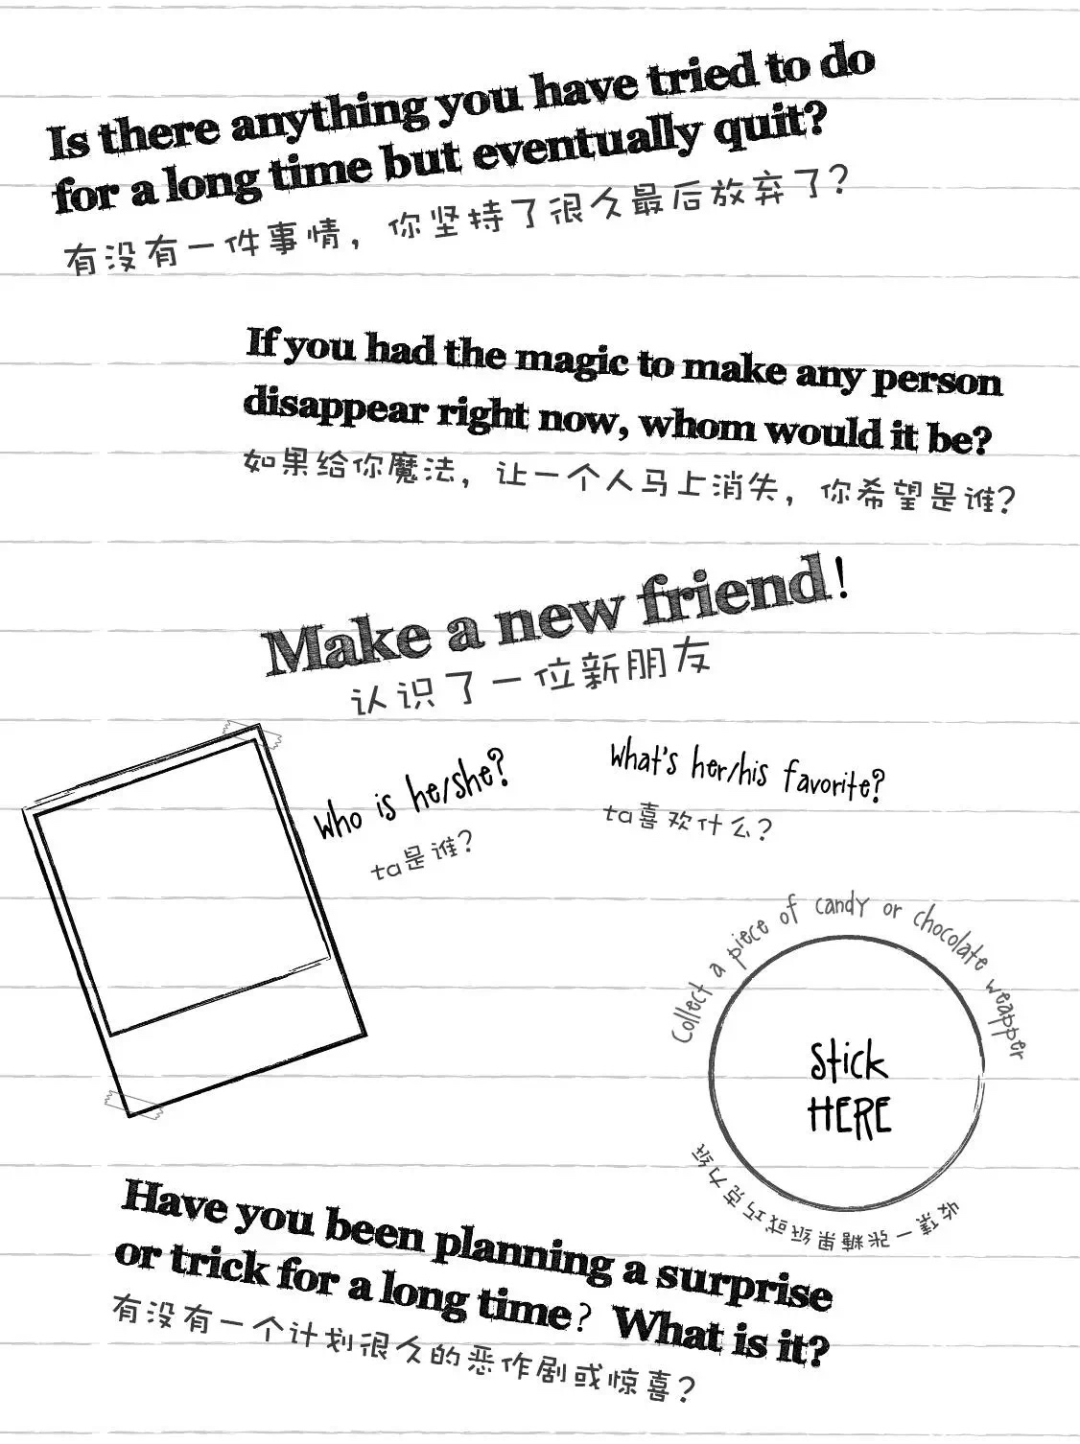 Is there anything you have tried to do
for a long time but eventually quit?
有没有一件事情，你坚持了很久最后放弃了？
If you had the magic to make any person
disappear right now, whom would it be?
如果给你魔法，让一个人马上消失，你希望是谁？
Make a new friend!
认识了一位新朋友
Who is he/she?
ta是谁？
What's her/his favorite?
ta喜欢什么？
Collect a piece of candy or chocolate weapper
Stick
HERE
收集一张糖果纸或巧克力纸
Have you been planning a surprise
or trick for a long time？ What is it?
有没有一个计划很久的恶作剧或惊喜？